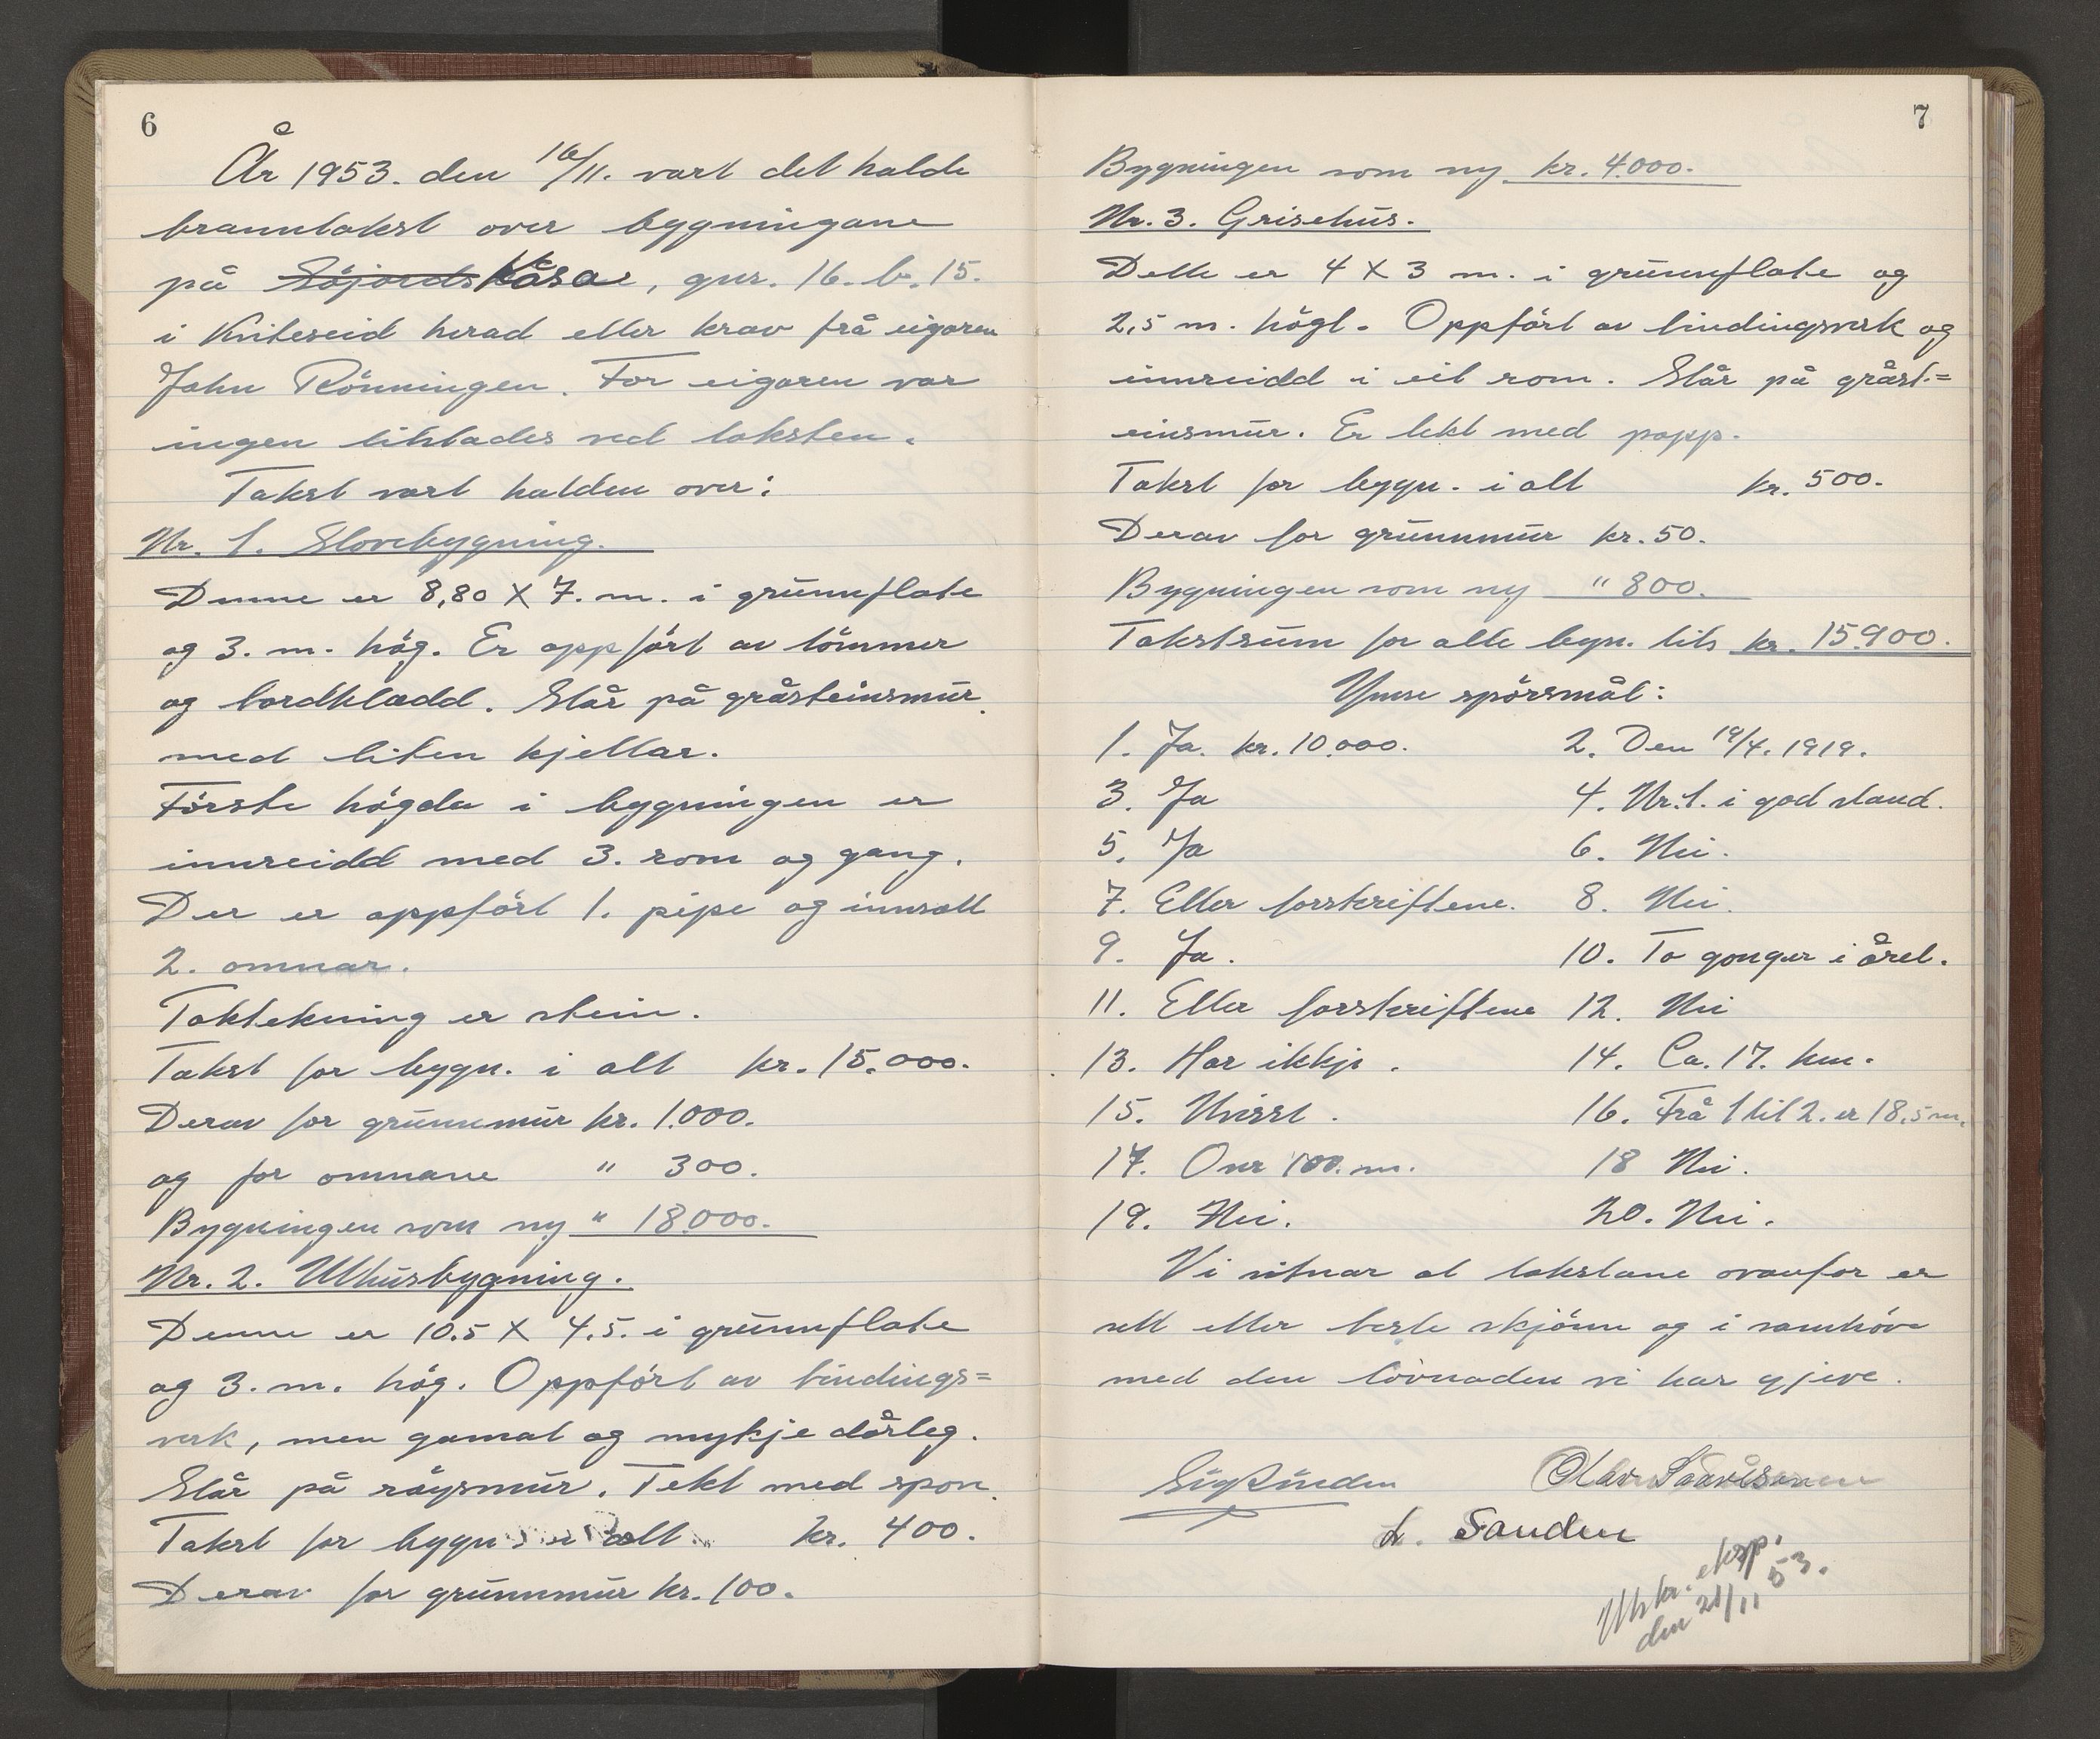 6
År 1953. den 16/11. vart det halde
branntakst over bygningane
på Söjords Kåsa, gnr. 16. b. 15.
i Kviteseid herad etter krav frå eigaren
John Rönningen. For eigaren var
ingen tilstades ved taksten.
Takst vart halden over:
Nr. 1. Stovebygning.
Denne er 8,80 X 7. m. i grunnflate
og 3. m. hög. Er oppfört av tömmer
og bordklædd. Står på gråsteinsmur.
med liten kjellar.
Förste högda i bygningen er
innreidd med 3. rom og gang.
Der er oppfört 1. pipe og innsatt
2. omnar.
Taktekning er stein.
Takst for bygn. i alt kr. 15.000.
Derav for grunnmur kr. 1.000.
og for omnane " 300.
Bygningen som ny " 18.000.
Nr. 2. Uthusbygning.
Denne er 10.5 X 4.5. i grunnflate
og 3. m. hög. Oppfört av bindings=
verk, men gamal og mykje dårleg.
Står på röysmur. Tekt med spon.
Takst for bygn. i alt kr. 400.
Derav for grunnmur kr. 100.
7
Bygningen som ny kr. 4.000.
Nr. 3. Grisehus.
Dette er 4 X 3 m. i grunnflate og
2,5 m. högt. Oppfört av bindingsverk og
innreidd i eit rom. Står på gråst=
einsmur. Er tekt med papp.
Takst for bygn. i alt kr. 500.
Derav for grunnmur kr. 50.
Bygningen som ny " 800.
Takstsum for alle bygn. tils kr. 15.900.
Ymse spörsmål:
1. Ja. kr. 10.000. 2. Den 19/4. 1919.
3. Ja 4. Nr. 1. i god stand.
5. Ja 6. Nei.
7. Etter forskriftene. 8. Nei.
9. Ja. 10. To gonger i året.
11. Etter forskriftene 12. Nei
13. Har ikkje. 14. Ca. 17. km.
15. Uvisst. 16. Frå 1 til 2. er 18,5 m.
17. Over 100. m. 18 Nei.
19. Nei. 20. Nei.
Vi vitnar at takstane ovanfor er
sett etter beste skjönn og i samhöve
med den lovnaden vi har gjeve.
Sig Sunden Olav Taraldsen
L. Sanden
Utskr. eksp.
den 21/11 53.